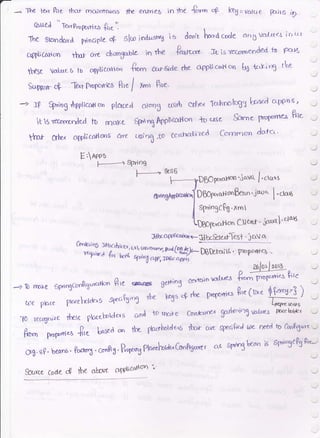 → The text file that maintains the entries in the form of key=value pairs is
called "Text Properties file".
The standard principle of s/w industry is don't hard code any values in our
application that are changable in the feature. It is recommended to pass
these values to application from outside the application by taking the
support of Text Properties file / xml file.
→ If Spring Application placed along with other Technology based appns,
it is recommended to make Spring Application to use Same properties file
that other applications are using to centralized Common data.
E:\Apps
Spring
Test5
SpringApplication
DBOperation.java /.class
DBOperationBean.java /.class
springCfg.xml
DBOperation Client.java /.class
Jdbc application → JdbcSelectTest.java
DBDetails.properties.
26/01/2013
→ To make SpringConfiguration file getting certain values from properties file
we place placeholders specifying the keys of the properties file (like ${key})
represents placeholder
To recognize these placeholders and to make Container gathering values
from properties file based on the placeholders that are specified we need to Configure
org.sf.beans.factory.config.PropertyPlaceholderConfigurer as spring bean in SpringCfg file
Source Code of the above application :